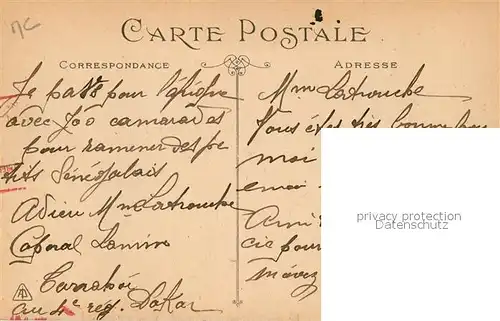 CARTE POSTALE
CORRESPONDANCE
Je pars pour l'Afrique
avec 300 camarades
pour ramener des pe
tits Sénégalais
Adieu Mme Latrouche
Caporal Lamine
au 4e rég. Dakar
ADRESSE
Mme Latrouche
Vous êtes très bonne pou
moi
e moi
Ami
cie pour
m'avez
privacy protection
Datenschutz